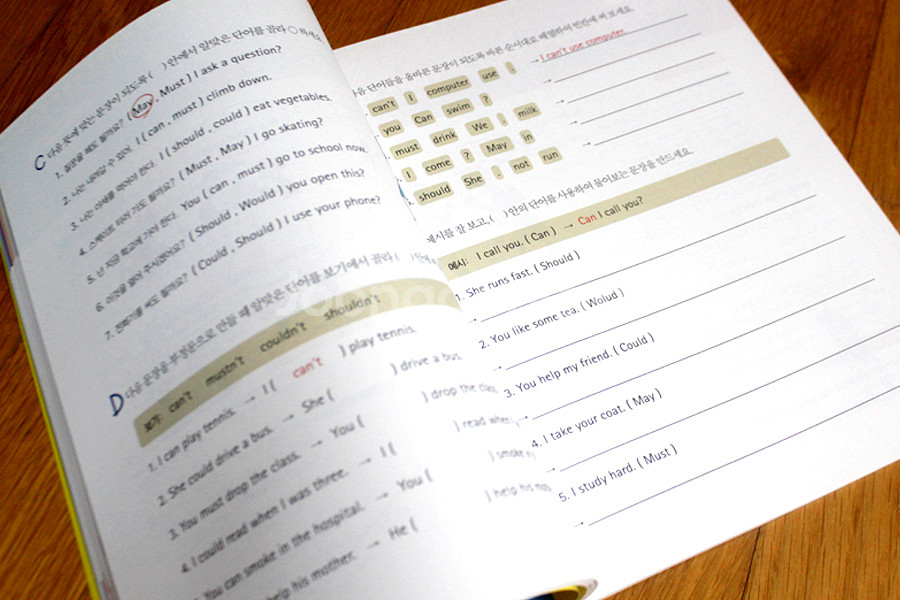 C 다음 뜻에 맞는 문장이 되도록 ( )안에서 알맞은 단어를 골라 ○하세요.
1. 질문을 해도 될까요? ( May , Must ) I ask a question?
2. 나는 내려갈 수 있어. I ( can , must ) climb down.
3. 나는 야채를 먹어야 한다. I ( should , could ) eat vegetables.
4. 스케이트 타러 가도 될까요? ( Must , May ) I go skating?
5. 넌 지금 학교에 가야 한다. You ( can , must ) go to school now.
6. 이것을 열어 주시겠어요? ( Should , Would ) you open this?
7. 전화기를 써도 될까요? ( Could , Should ) I use your phone?
D 다음 문장을 부정문으로 만들 때 알맞은 단어를 보기에서 골라 ( )안에
보기: can't mustn't couldn't shouldn't
1. I can play tennis. → I ( can't ) play tennis.
2. She could drive a bus. → She ( ) drive a bus.
3. You must drop the class. → You ( ) drop the class.
4. I could read when I was three. → I ( ) read when
You can smoke in the hospital. → You ( ) smoke
help his mother. → He ( ) help his
단어들을 올바른 문장이 되도록 바른 순서대로 배열하여 빈칸에 써 보세요.
can't I computer use . → I can't use computer
you Can swim ? →
must drink We . milk →
I come ? May in →
should She . not run
예시를 잘 보고, ( )안의 단어를 사용하여 물어보는 문장을 만드세요.
예시: I call you. ( Can ) → Can I call you?
1. She runs fast. ( Should )
→
2. You like some tea. ( Wolud )
→
3. You help my friend. ( Could )
→
4. I take your coat. ( May )
→
5. I study hard. ( Must )
→